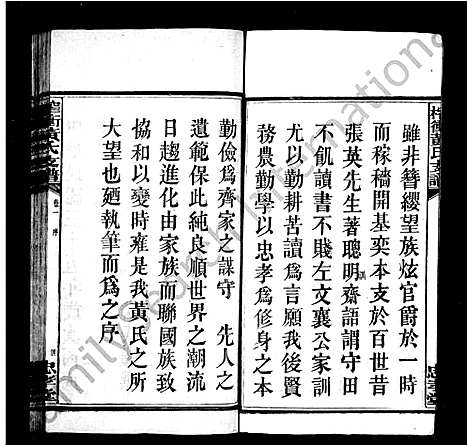 雖非簪纓望族炫官爵於一時
而稼穡開基奕本支於百世昔
張英先生著聰明齋語謂守田
不飢讀書不賤左文襄公家訓
以勤耕苦讀為言願我後賢
務農勤學以忠孝為修身之本
勤儉為齊家之謀守 先人之
遺範保此純良順世界之潮流
日趨進化由家族而聯國族致
協和以變時雍是我黃氏之所
大望也廼執筆而為之序
衝黃氏支譜
卷一 序
忠孝堂
FamilySearch International